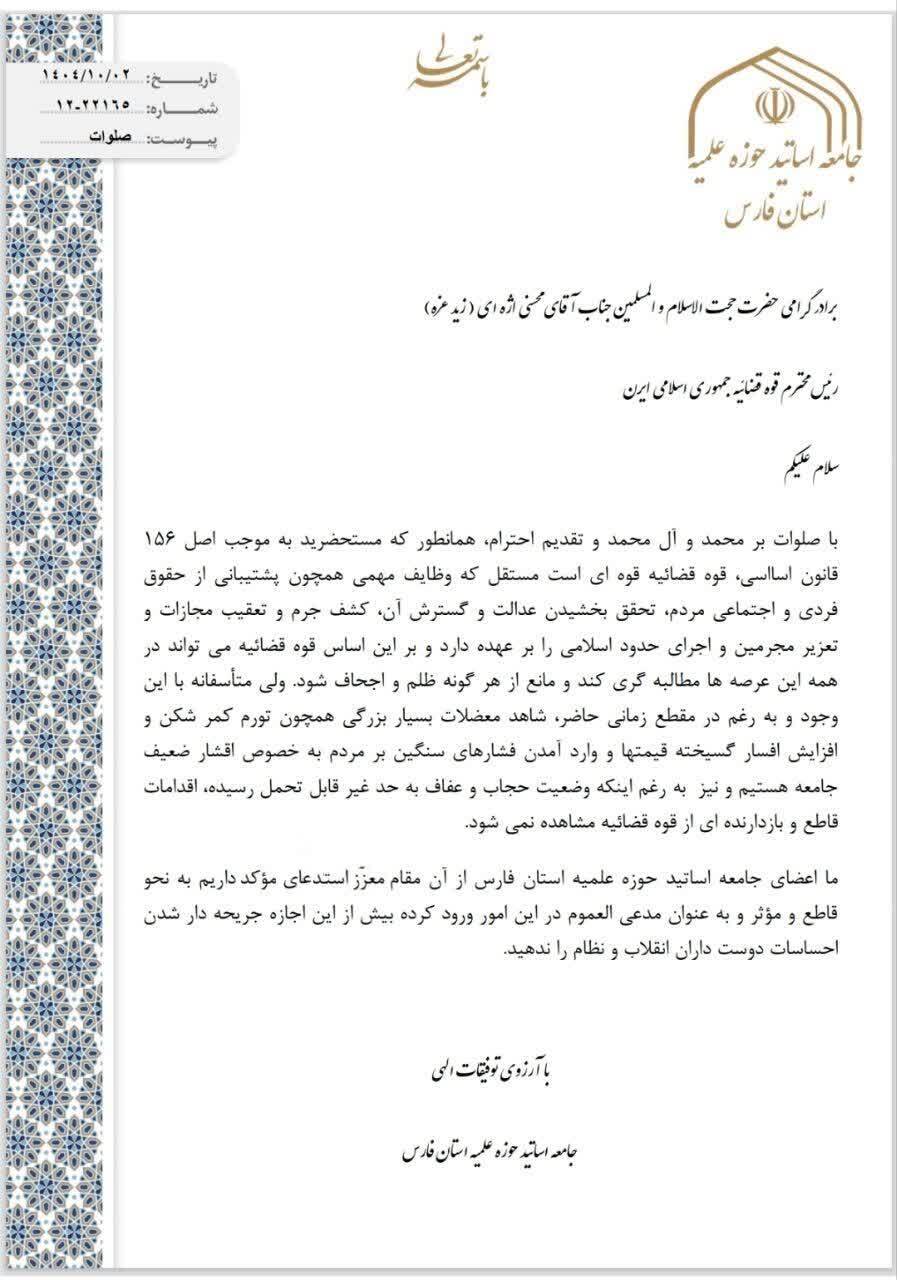 باسمه تعالی
جامعه اساتید حوزه علمیه
استان فارس
تاریخ: ۱۴۰۴/۱۰/۰۲
شماره: ۱۲-۲۲۱۶۵
پیوست: صلوات
برادر گرامی حضرت حجت الاسلام و المسلمین جناب آقای محسنی اژه ای (زید عزه)
رئیس محترم قوه قضائیه جمهوری اسلامی ایرن
سلام علیکم
با صلوات بر محمد و آل محمد و تقدیم احترام، همانطور که مستحضرید به موجب اصل ۱۵۶
قانون اسااسی، قوه قضائیه قوه ای است مستقل که وظایف مهمی همچون پشتیبانی از حقوق
فردی و اجتماعی مردم، تحقق بخشیدن عدالت و گسترش آن، کشف جرم و تعقیب مجازات و
تعزیر مجرمین و اجرای حدود اسلامی را بر عهده دارد و بر این اساس قوه قضائیه می تواند در
همه این عرصه ها مطالبه گری کند و مانع از هر گونه ظلم و اجحاف شود. ولی متأسفانه با این
وجود و به رغم در مقطع زمانی حاضر، شاهد معضلات بسیار بزرگی همچون تورم کمر شکن و
افزایش افسار گسیخته قیمتها و وارد آمدن فشارهای سنگین بر مردم به خصوص اقشار ضعیف
جامعه هستیم و نیز به رغم اینکه وضعیت حجاب و عفاف به حد غیر قابل تحمل رسیده، اقدامات
قاطع و بازدارنده ای از قوه قضائیه مشاهده نمی شود.
ما اعضای جامعه اساتید حوزه علمیه استان فارس از آن مقام معزّز استدعای مؤکد داریم به نحو
قاطع و مؤثر و به عنوان مدعی العموم در این امور ورود کرده بیش از این اجازه جریحه دار شدن
احساسات دوست داران انقلاب و نظام را ندهید.
با آرزوی توفیقات الهی
جامعه اساتید حوزه علمیه استان فارس